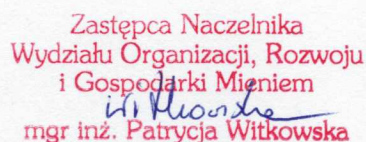 Zastępca Naczelnika
Wydziału Organizacji, Rozwoju
i Gospodarki Mieniem
mgr inż. Patrycja Witkowska